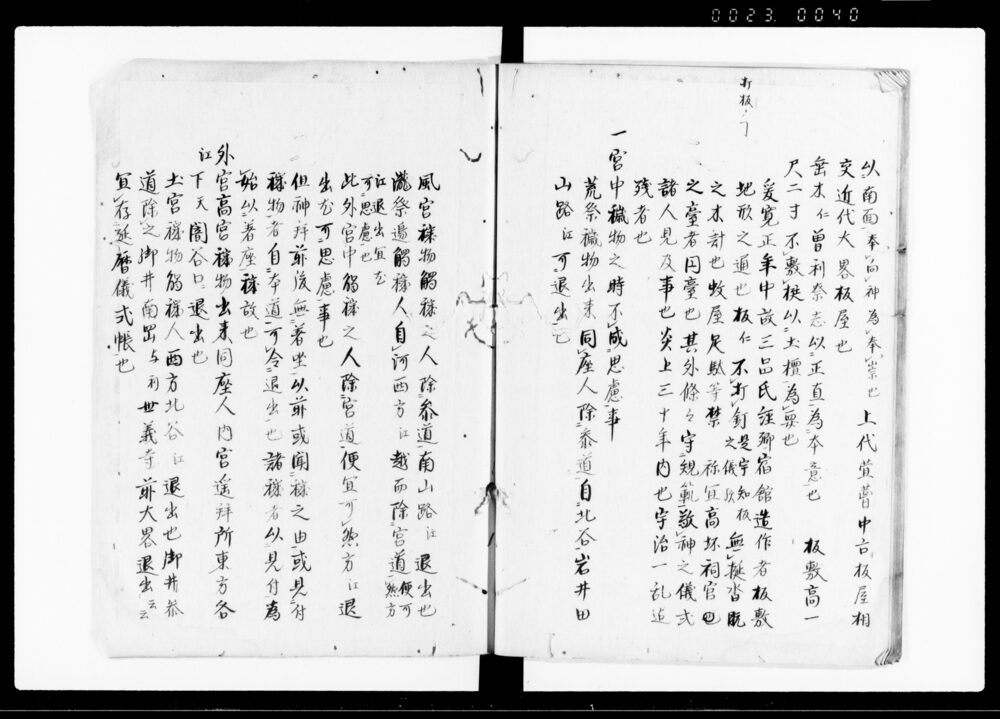 0023.0040
打板ノ丁
以南面奉向神為奉崇也 上代萱葺中古板屋相
交近代大畧板屋也
垂木仁曽利祭志以正直為本意也 板敷高一
尺二寸不敷梃以土檀為要也
爰寛正年中故三呂氏経卿宿館造作者板敷
地形之通也板仁不打釘是宇知板之儀歟無
之木計也牧屋足駄等禁 祢宜高坏祠官
之臺者円臺也其外條々守規範敬神之儀式
諸人見及事也炎上三十年内也宇治一乱迄
残者也
一宮中穢物之時不成思慮事
荒祭穢物出来同座人除参道自北谷岩井田
山路江可退出也
風宮穢物觸穢之人除参道南山路江退出也
瀧祭邊觸穢人自河西方江越而除宮道便可然方
江退出宜可思慮也
此外宮中觸穢之人除宮道便宜可然方江退
出宜可思慮事也
但神拜前後無着坐以前或聞穢之由或見付
穢物者自本道可令退出也諸穢者以見付為
始以着座穢故也
外宮高宮穢物出来同座人内宮遙拜所東方谷
江下天闇谷口退出也
土宮穢物觸穢人西方北谷江退出也御井参
道除之御井南岡与利世義寺前大畧退出云云
宜存延暦儀式帳也